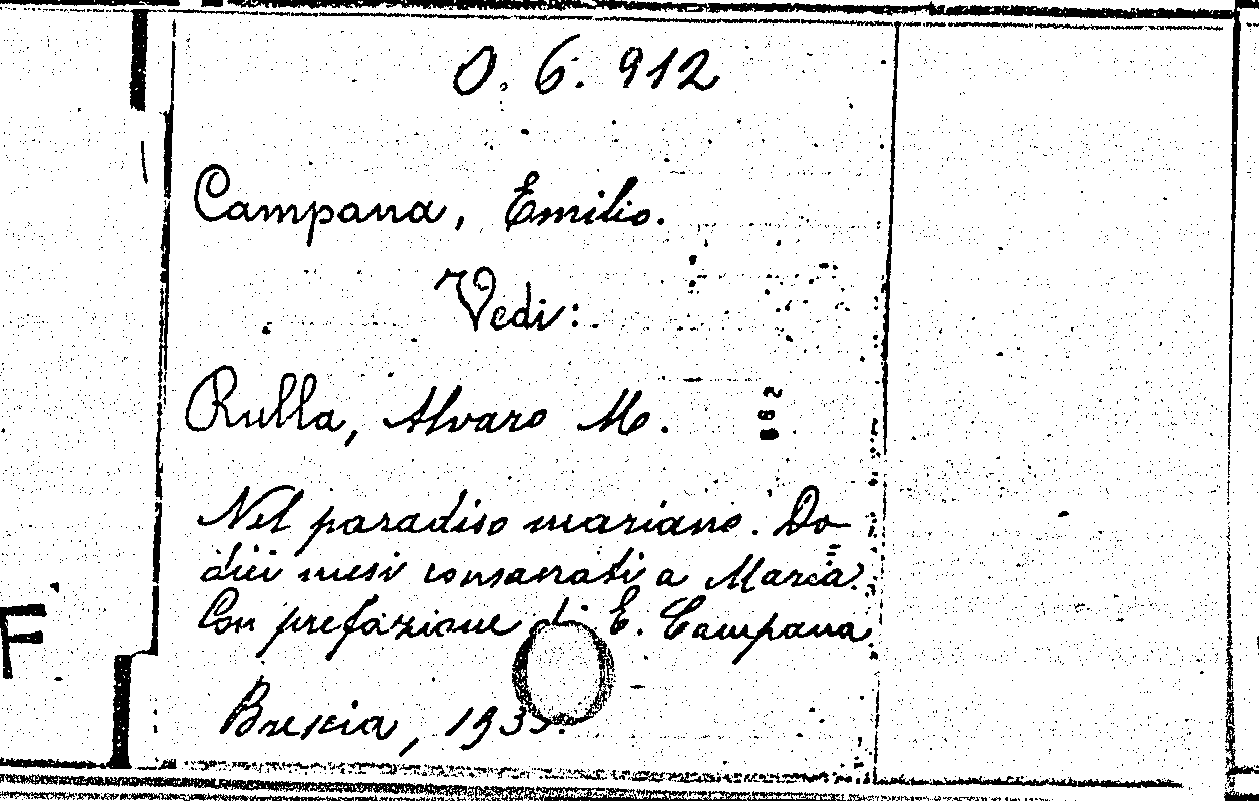 O. 6. 912
Campana, Emilio.
Vedi:
Rulla, Alvaro M.
Nel paradiso mariano. Do=
dici mesi consacrati a Maria.
Con prefazione di E. Campana
Brescia, 1935.
F